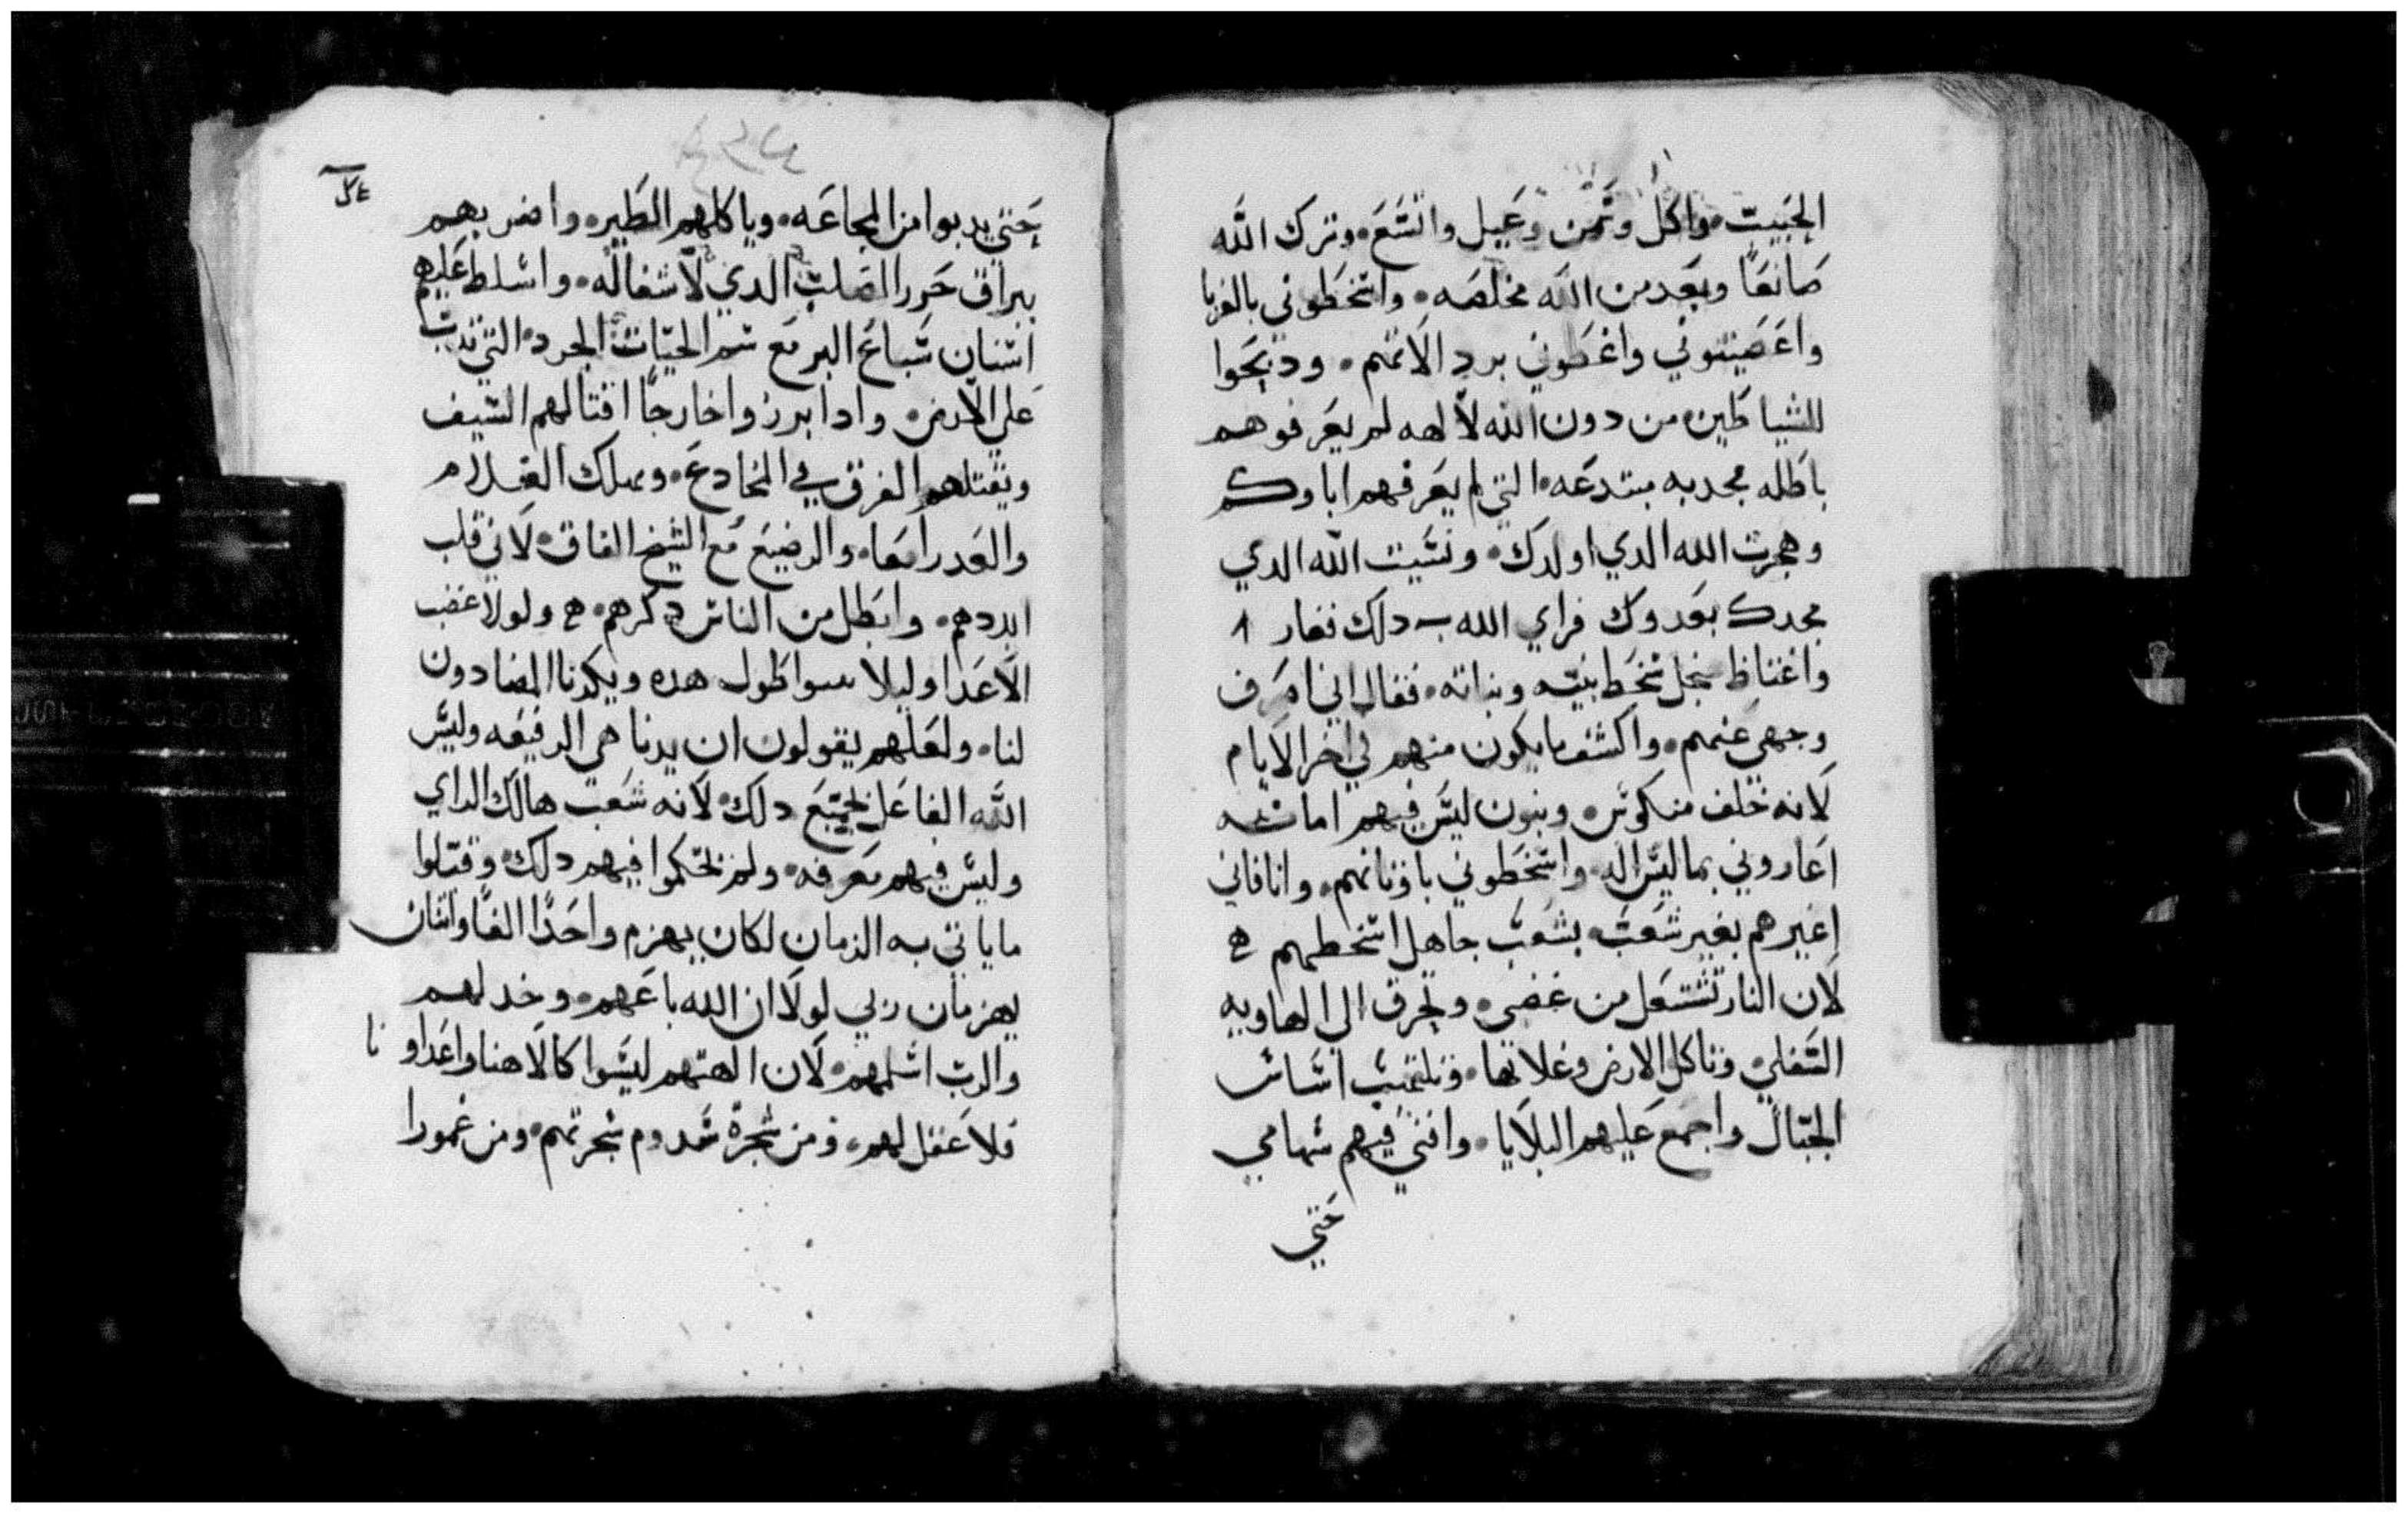 الحبيب • واكل وتمن وعبل واتسع • وترك الله
صانعا وبعد من الله مخلصه • واسخطوني بالغربا
واعضبتوني واغطوني برد الاتهم • ودبحوا
للشياطين • من دون الله لالهه لم يعرفوهم
باطله مجدبه مبتدعه • التي لم يعرفهم اباوكم
وهجرت الله الدي اولدك • ونسيت الله الدي
مجدك بعدوك فراي الله دلك فغار
واغتاظ سخط بنيه وبناته • فقال اني اصرف
وجهي عنهم • واكشف ما يكون منهم في اخر الايام
لانه خلف منكوس • وبنون ليس فيهم امانه
اغاروني بما ليس اله • واسخطوني باوثانهم • وانا فاني
اغيرهم بغير شعب • بشعب جاهل اسخطهم
لان النار تشتعل من غضبي • وتحرق الى الهاويه
السفلي • وتاكل الارض وغلاتها • وتلتهب اساس
الجبال واجمع عليهم البلايا • وافني فيهم سهامي
حتي
حتي يدوبوا من المجاعه • وياكلهم الطير • واضربهم
بيراق حرر الصلب الدي لا شفا له • واسلط عليهم
اسنان سباع البر مع سم الحيات الجرد • التي تدب
علي الارض • وادا برزوا خارجا افتا لهم السيف
ويقتلهم الفرق في المخادع • ويهلك الغلام
والعدرا معا • والرضيع مع الشيخ الفاق • لاني قلت
ابددهم • وابطل من الناس دكرهم • ولولا غضب
الاعدا وليلا طول هده ويكدنا المضادون
لنا • ولعلهم يقولون ان يدنا هي الرفيعه وليس
الله الفاعل لجميع دلك • لانه شعب هالك الراي
وليس فيهم معرفه • ولم يحكموا فيهم دلك • وقتلوا
ما ياتي به الزمان لكان يهزم واحدا الفا واتنان
يهزمان ربي لولا ان الله باعهم • وخدلهم
والرب اسلمهم • لان الهتهم ليسوا كالاهنا واعداونا
فلا عقل لهم • ومن شجرة سدوم شجرتهم • ومن غمورا